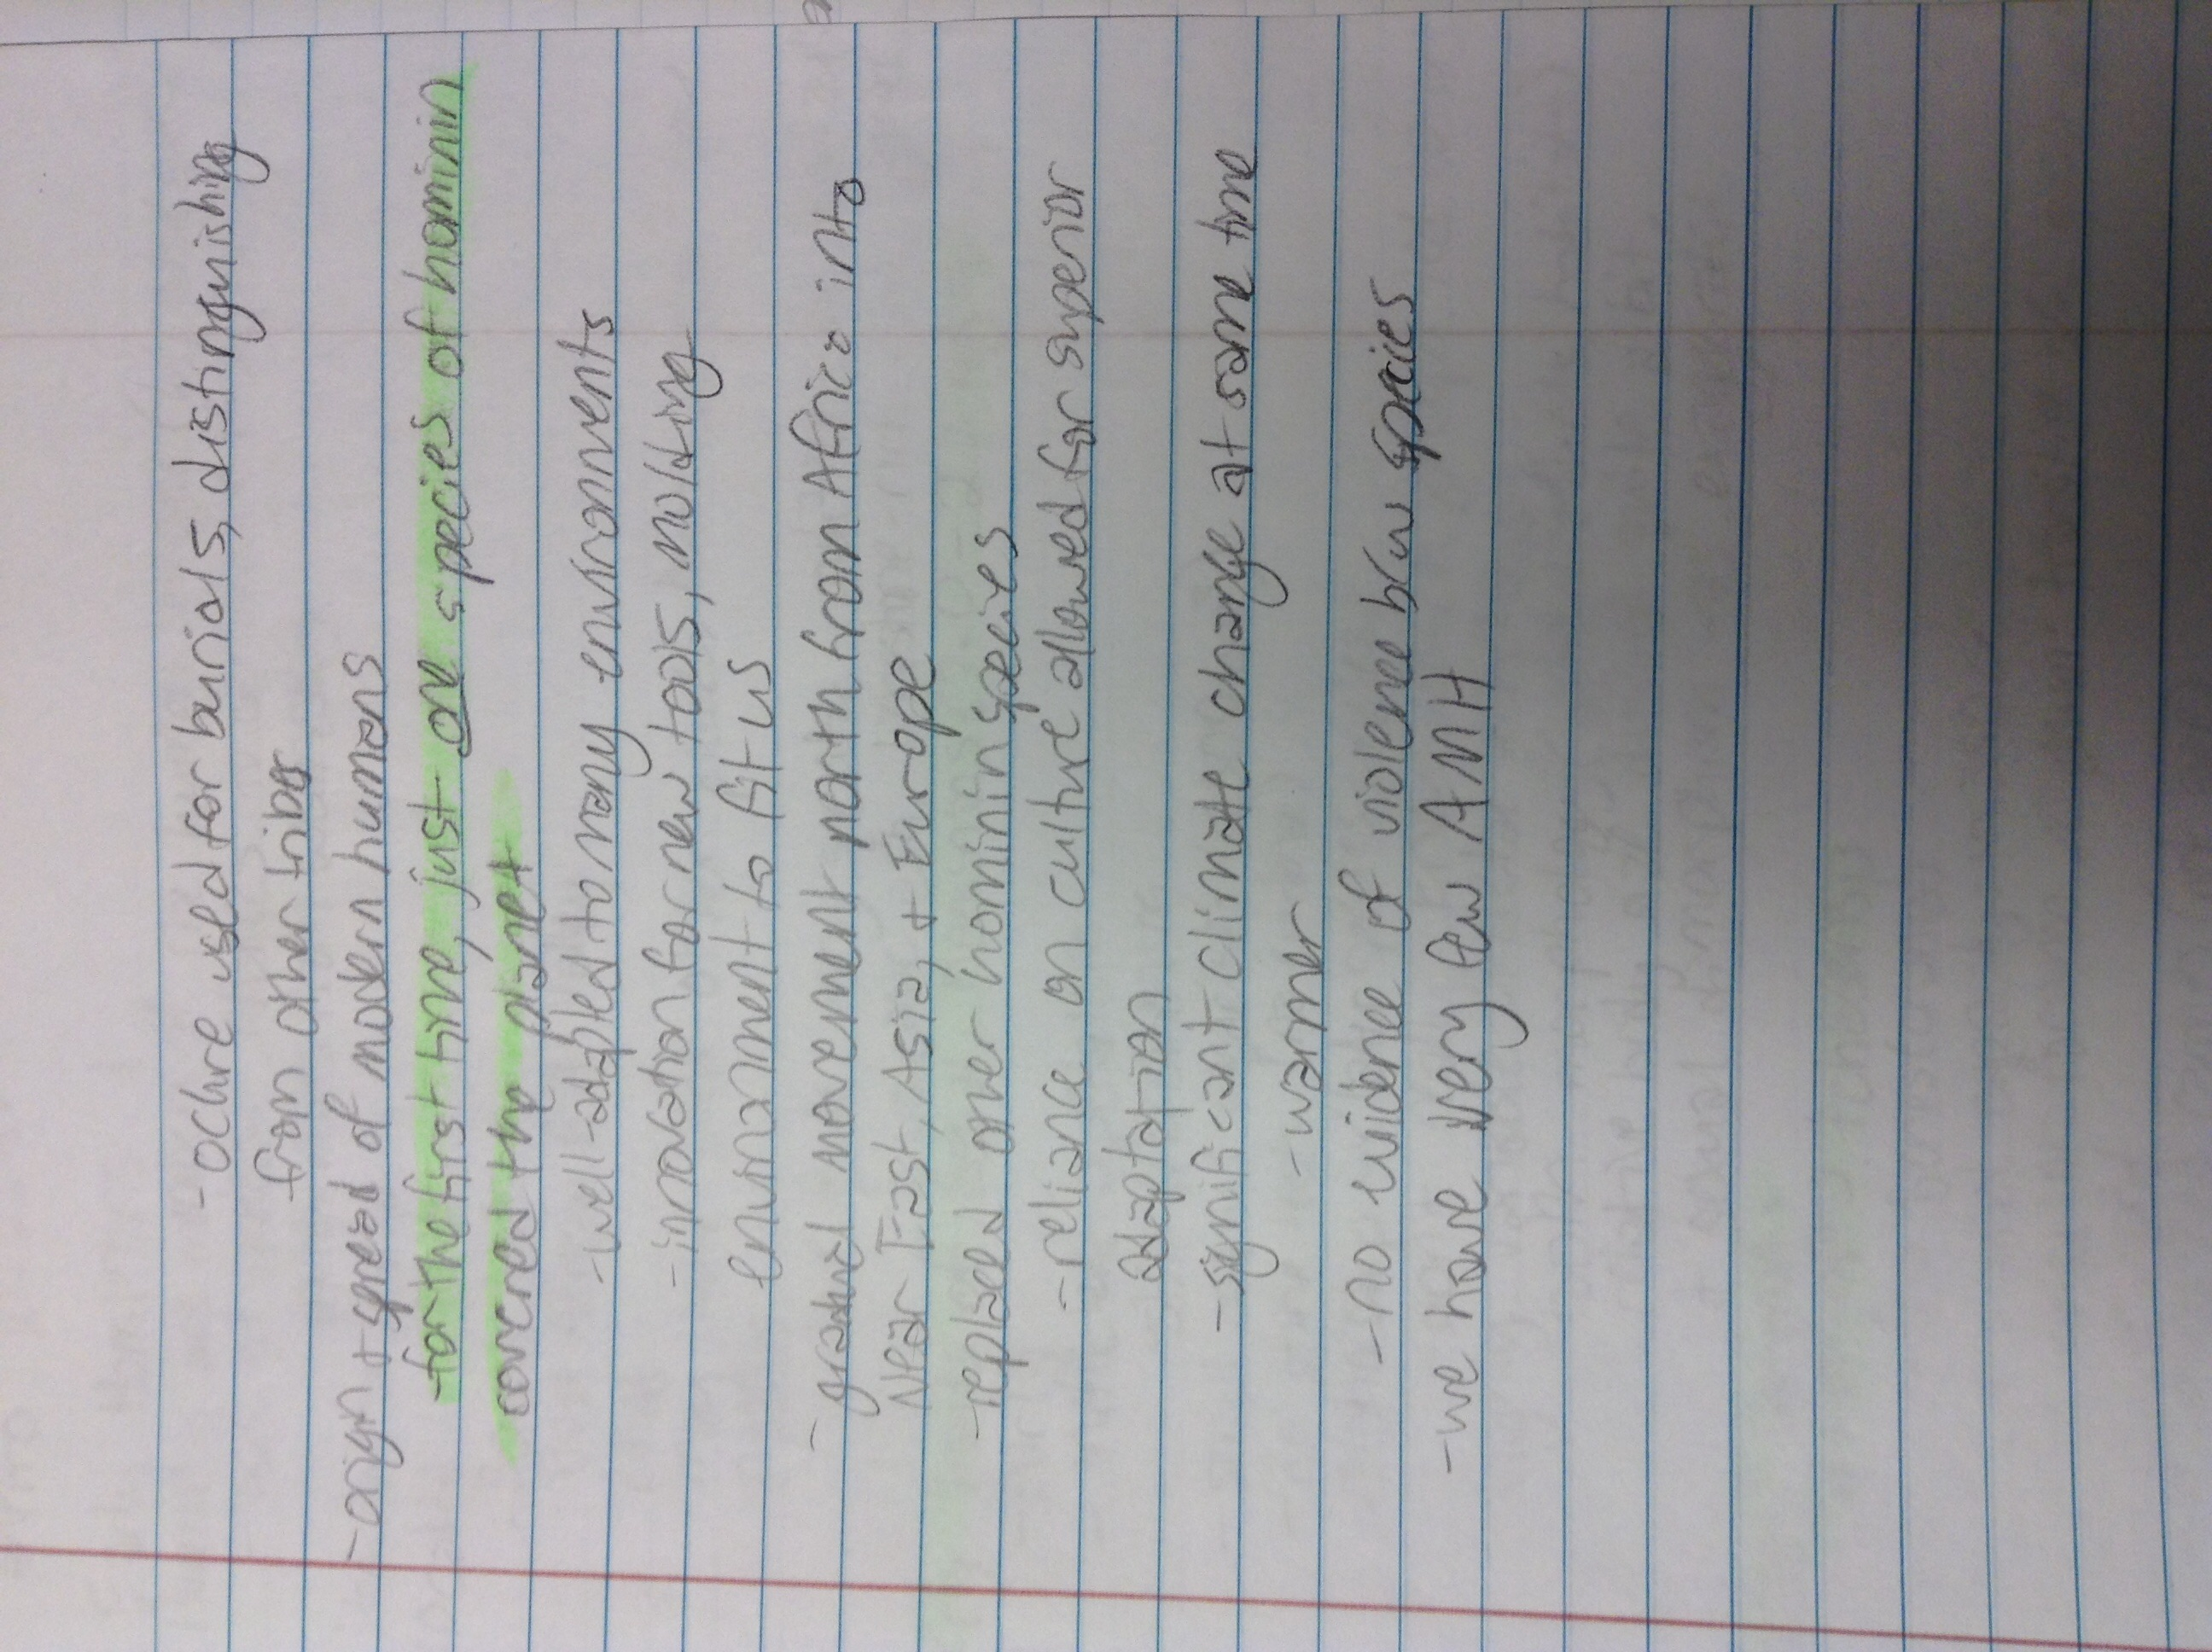 - ochre used for burials, distinguishing
from other tribes
- origin + spread of modern humans
- for the first time, just one species of hominin
covered the planet
- well-adapted to many environments
- innovation for new tools, molding
environment to fit us
- gradual movement north from Africa into
Near East, Asia, + Europe
- replaced other hominin species
- reliance on culture allowed for superior
adaptation
- significant climate change at same time
- warmer
- no evidence of violence b/w species
- we have very few AMH